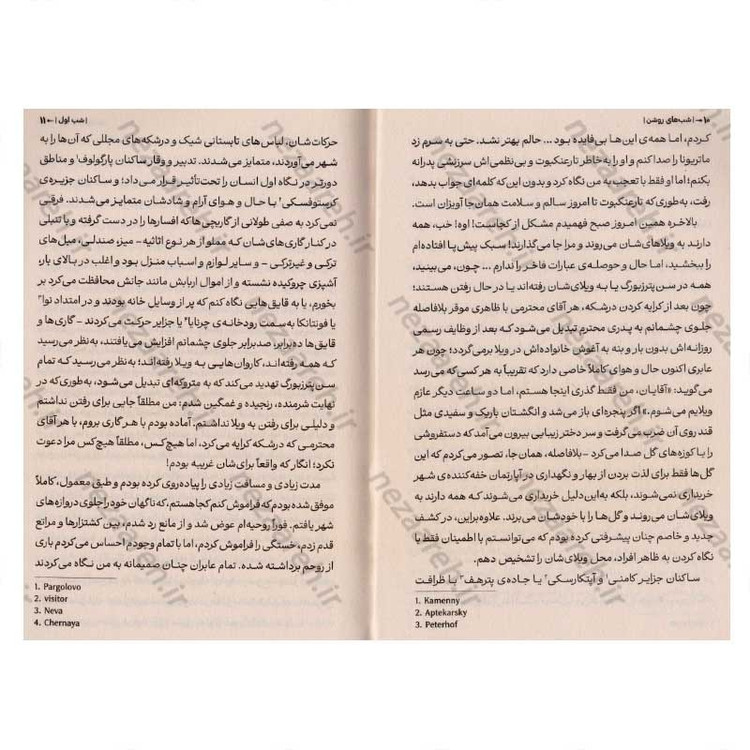 ۱۰ | شب‌های روشن |
کردم، اما همه‌ی این‌ها بی‌فایده بود ... حالم بهتر نشد، حتی به سرم زد
ماتریونا را صدا کنم و او را به خاطر تارعنکبوت و بی‌نظمی‌اش سرزنشی پدرانه
بکنم؛ اما او فقط با تعجب به من نگاه کرد و بدون این‌که کلمه‌ای جواب بدهد،
رفت، به‌طوری‌که تارعنکبوت تا امروز سالم و سلامت همان‌جا آویزان است.
بالاخره همین امروز صبح فهمیدم مشکل از کجاست! اوه! خب، همه
دارند به ویلاهای‌شان می‌روند و مرا جا می‌گذارند! سبک پیش پا افتاده‌ام
را ببخشید، اما حال و حوصله‌ی عبارات فاخر را ندارم ... چون، می‌بینید،
همه در سن‌پترزبورگ یا به ویلای‌شان رفته‌اند یا در حال رفتن هستند؛
چون بعد از کرایه کردن درشکه، هر آقای محترمی با ظاهری موقر بلافاصله
جلوی چشمانم به پدری محترم تبدیل می‌شود که بعد از وظایف رسمی
روزانه‌اش بدون بار و بنه به آغوش خانواده‌اش در ویلا برمی‌گردد؛ چون هر
عابری اکنون حال و هوای کاملاً خاصی دارد که تقریباً به هر کسی که می‌رسد
می‌گوید: «آقایان، من فقط گذری اینجا هستم، اما دو ساعت دیگر عازم
ویلایم می‌شوم.» اگر پنجره‌ای باز می‌شد و انگشتان باریک و سفیدی مثل
قند روی آن ضرب می‌گرفت و سر دختر زیبایی بیرون می‌آمد که دستفروشی
را با کوزه‌های گل صدا می‌کرد - بلافاصله، همان‌جا، تصور می‌کردم که این
گل‌ها فقط برای لذت بردن از بهار و نگهداری در آپارتمان خفه‌کننده‌ی شهر
خریداری نمی‌شوند، بلکه به‌این‌دلیل خریداری می‌شوند که همه دارند به
ویلای‌شان می‌روند و گل‌ها را با خودشان می‌برند. علاوه‌براین، در کشف
جدید و خاصم چنان پیشرفتی کرده بودم که می‌توانستم با اطمینان فقط با
نگاه کردن به ظاهر افراد، محل ویلای‌شان را تشخیص دهم.
ساکنان جزایر کامنی¹ و آپتکارسکی² یا جاده‌ی پترهف³ با ظرافت
1. Kamenny
2. Aptekarsky
3. Peterhof
| شب اول | ۱۱
حرکات‌شان، لباس‌های تابستانی شیک و درشکه‌های مجللی که آن‌ها را به
شهر می‌آوردند، متمایز می‌شدند. تدبیر و وقار ساکنان پارگولوف¹ و مناطق
دورتر در نگاه اول انسان را تحت‌تأثیر قرار می‌داد؛ و ساکنان جزیره‌ی
کرستوفسکی² با حال و هوای آرام و شادشان متمایز می‌شدند. فرقی
نمی‌کرد به صفی طولانی از گاریچی‌ها که افسارها را در دست گرفته و با تنبلی
در کنار گاری‌های‌شان که مملو از هر نوع اثاثیه - میز، صندلی، مبل‌های
ترکی و غیرترکی - و سایر لوازم و اسباب منزل بود و اغلب در بالای بار،
آشپزی چروکیده نشسته و از اموال اربابش مانند جانش محافظت می‌کرد بر
بخورم، یا به قایق‌هایی نگاه کنم که پر از وسایل خانه بودند و در امتداد نوا³
یا فونتانکا به‌سمت رودخانه‌ی چرنایا⁴ یا جزایر حرکت می‌کردند - گاری‌ها و
قایق‌ها ده‌برابر، صدبرابر جلوی چشمانم افزایش می‌یافتند، به‌نظر می‌رسید
که همه رفته‌اند، کاروان‌هایی به ویلا رفته‌اند؛ به‌نظر می‌رسید که تمام
سن‌پترزبورگ تهدید می‌کند که به متروکه‌ای تبدیل می‌شود، به‌طوری‌که در
نهایت شرمنده، رنجیده و غمگین شدم: من مطلقاً جایی برای رفتن نداشتم
و دلیلی برای رفتن به ویلا نداشتم. آماده بودم با هر گاری بروم، با هر آقای
محترمی که درشکه کرایه می‌کرد، اما هیچ‌کس، مطلقاً هیچ‌کس مرا دعوت
نکرد؛ انگار که واقعاً برای‌شان غریبه بودم!
مدت زیادی و مسافت زیادی را پیاده‌روی کرده بودم و طبق معمول، کاملاً
موفق شده بودم که فراموش کنم کجا هستم، که ناگهان خود را جلوی دروازه‌های
شهر یافتم. فوراً روحیه‌ام عوض شد و از مانع رد شدم، بین کشتزارها و مراتع
قدم زدم، خستگی را فراموش کردم، اما با تمام وجودم احساس می‌کردم باری
از روحم برداشته شده. تمام عابران چنان صمیمانه به من نگاه می‌کردند
1. Pargolovo
2. visitor
3. Neva
4. Chernaya
nezaaneh.ir